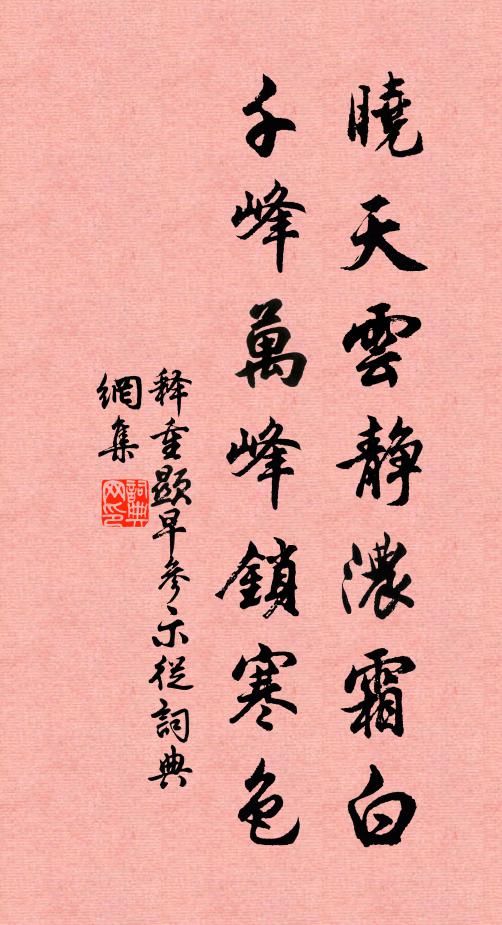 曉天雲靜濃霜白
千峰萬峰鎖寒色
释重顯早參示從詞典
網集
詞典
网印